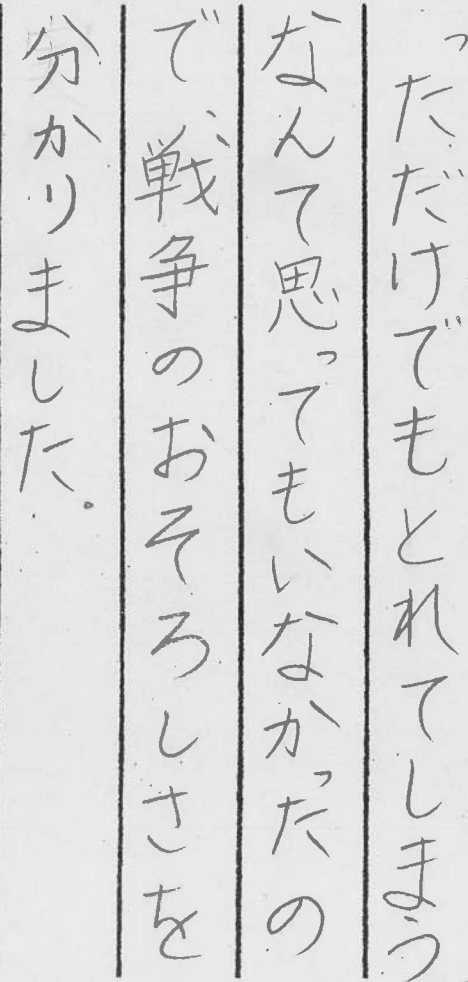 っただけでもとれてしまう
なんて思ってもいなかったの
で、戦争のおそろしさを
分かりました。